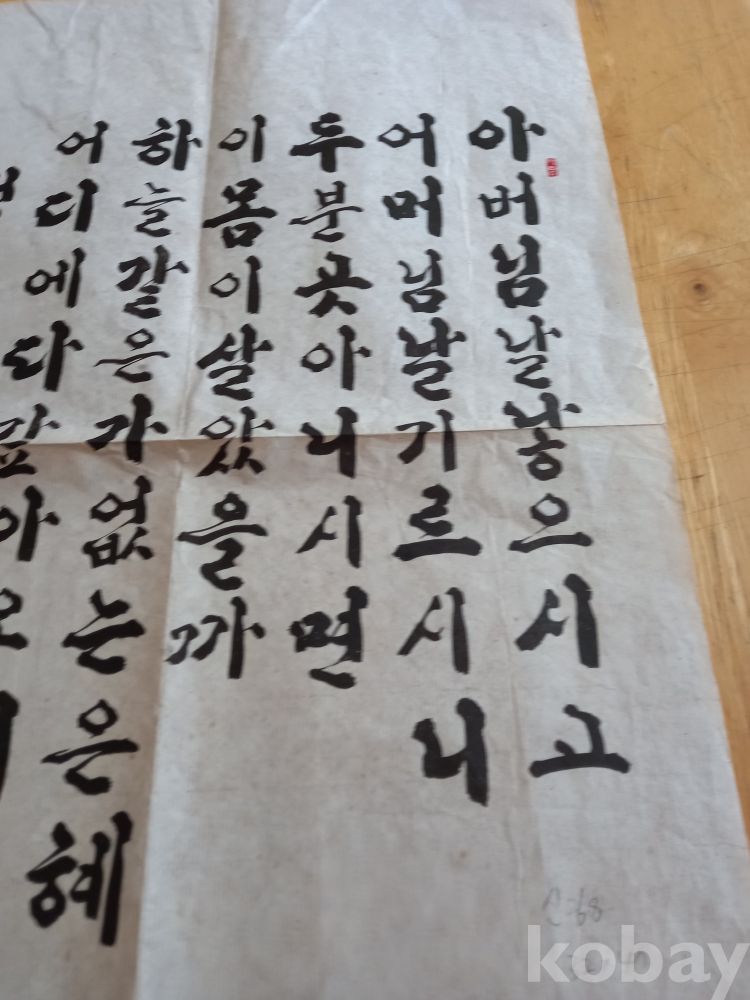 아버님날낳으시고
어머님날기르시니
두분곳아니시면
이몸이살았을까
하늘같은가없는은혜
어디에다갚아오
kobay